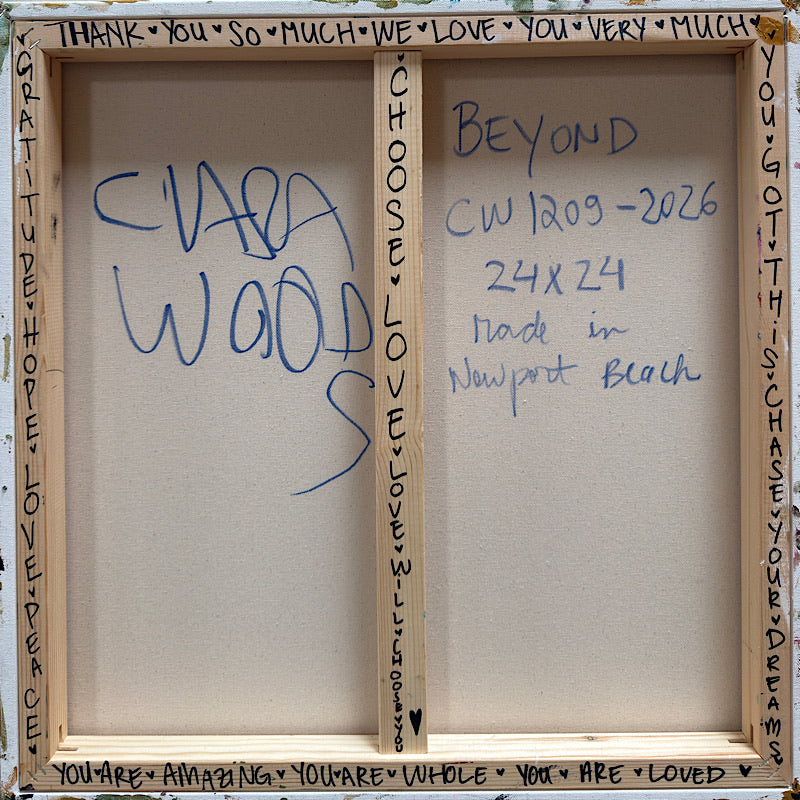 THANK YOU SO MUCH WE LOVE YOU VERY MUCH
GRATITUDE HOPE LOVE PEACE
CIARA
WOOD
S
CHOOSE LOVE LOVE WILL CHOOSE YOU
BEYOND
CW 1209-2026
24X24
Made in
Newport Beach
YOU GOT THIS CHASE YOUR DREAMS
YOU ARE AMAZING YOU ARE WHOLE YOU ARE LOVED